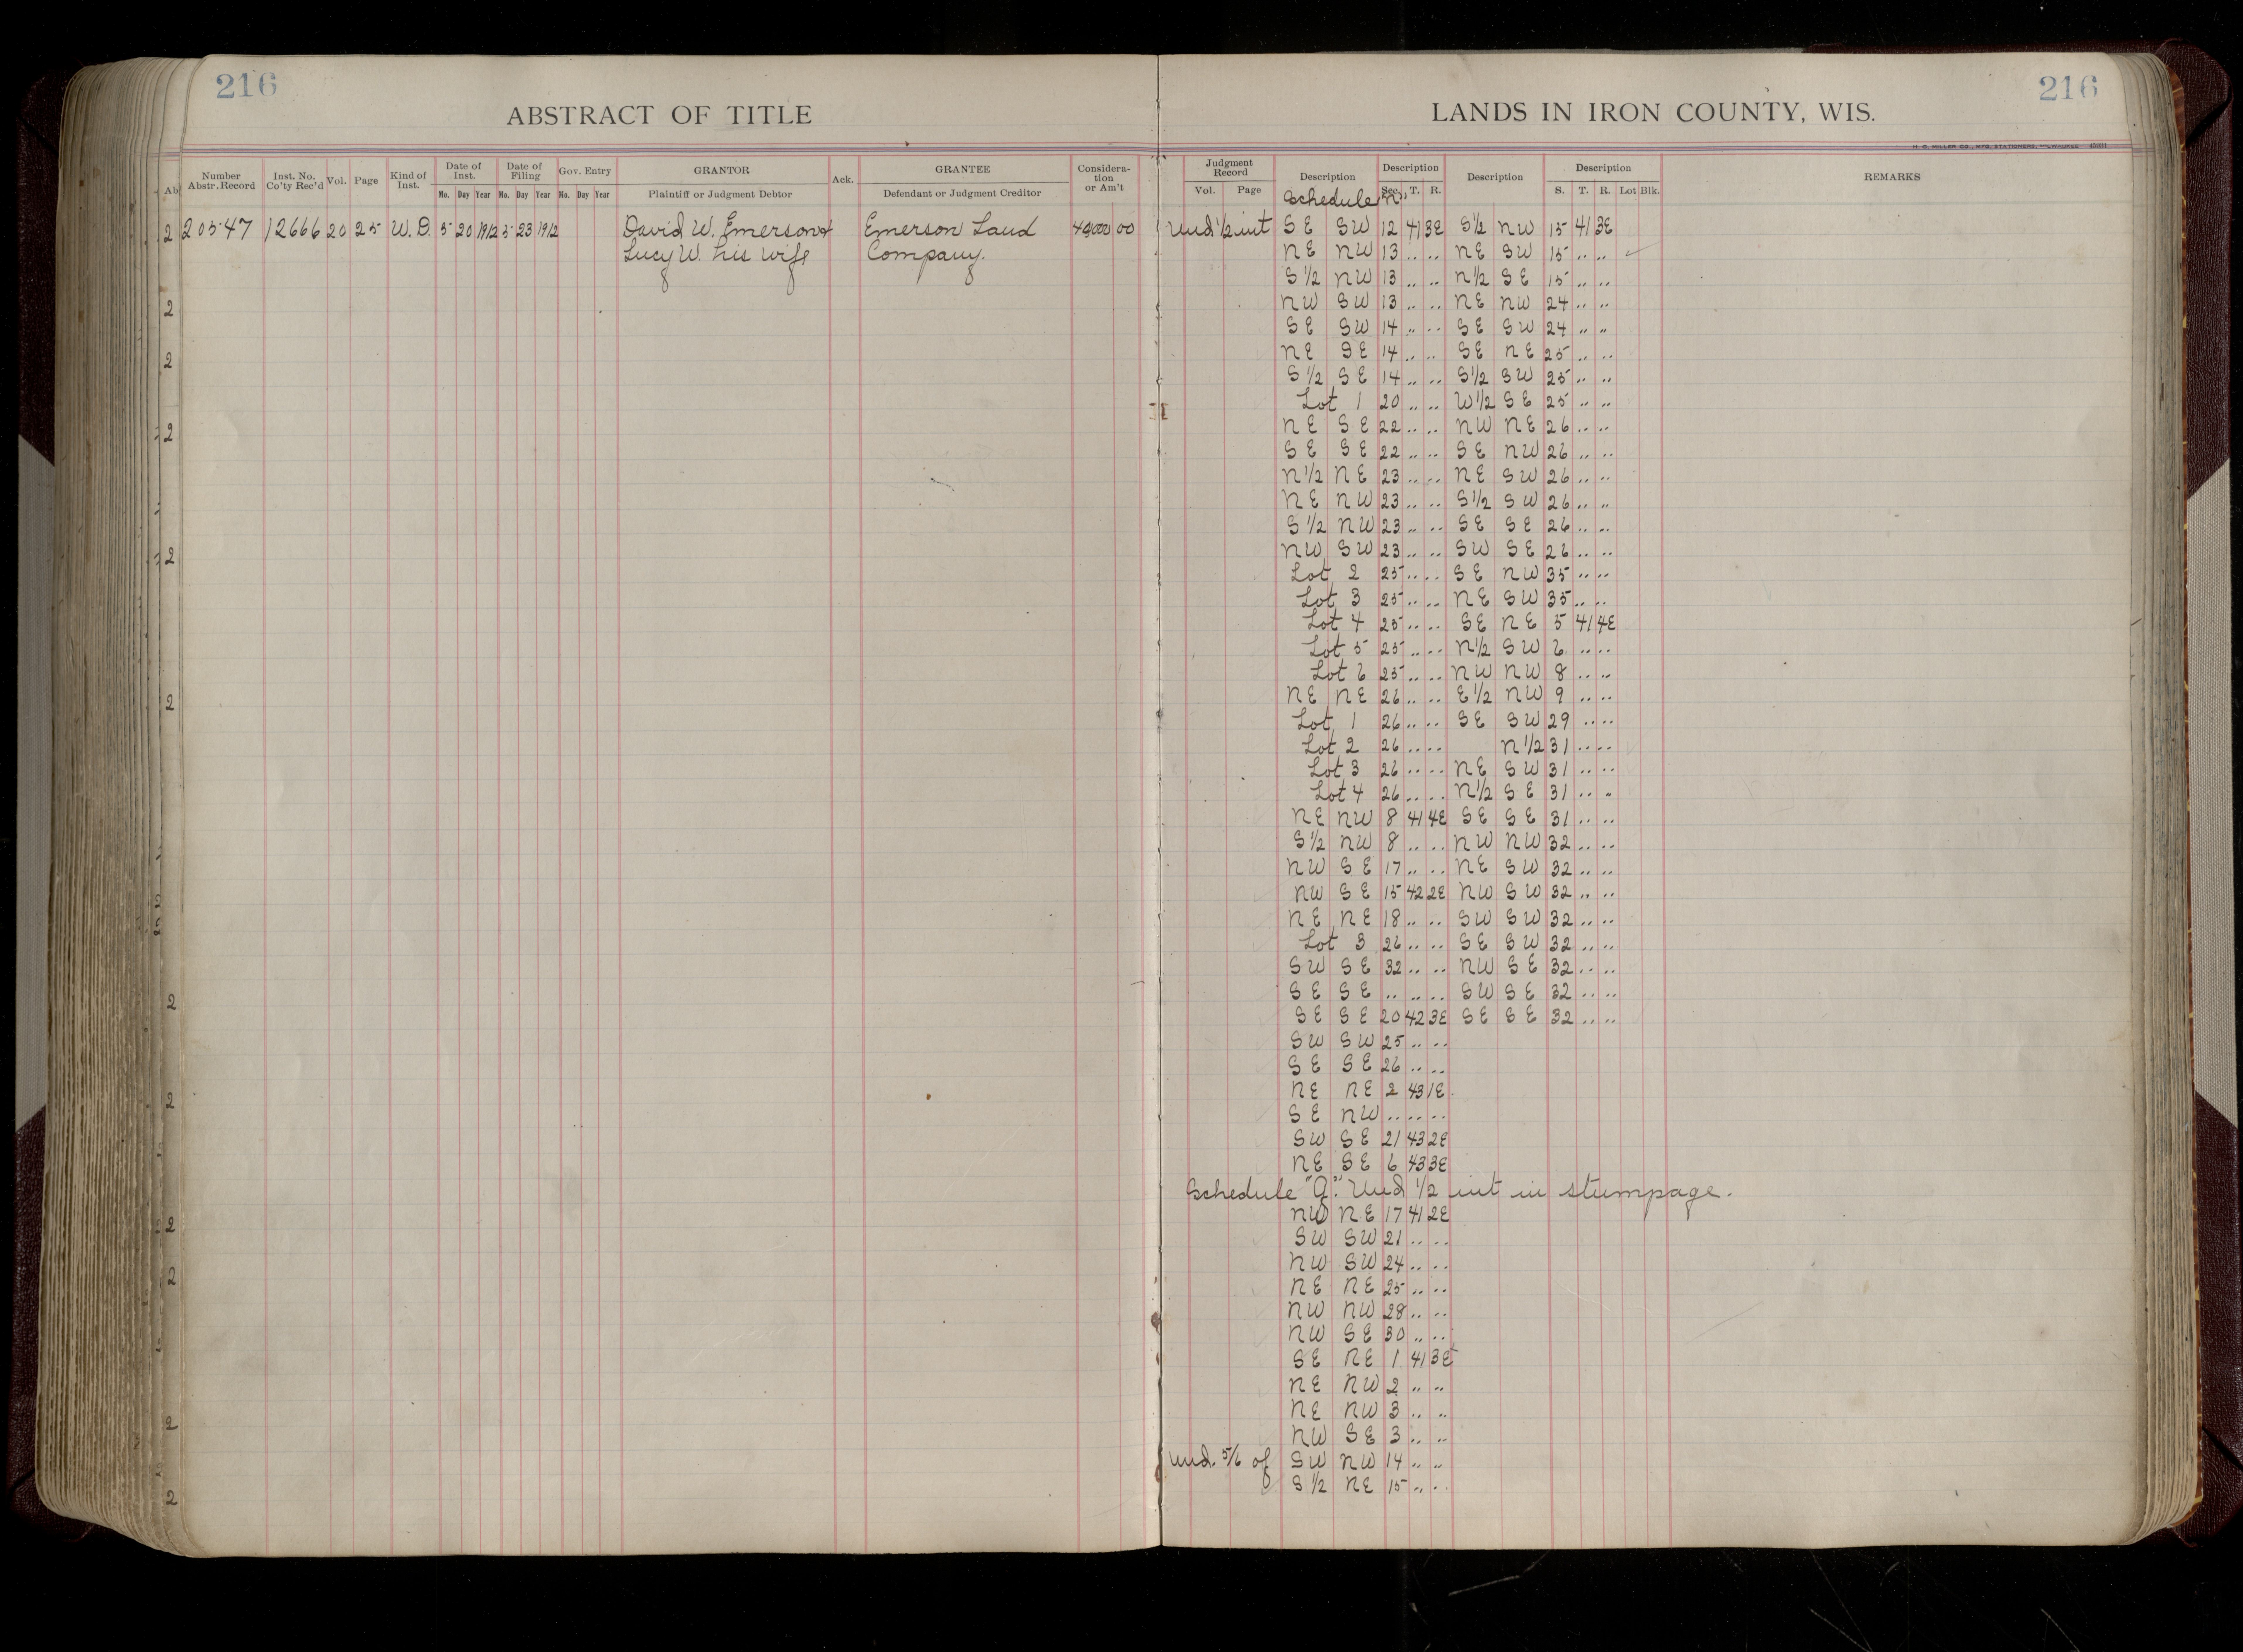 216
216
ABSTRACT OF TITLE
LANDS IN IRON COUNTY, WIS.
H. C. MILLER CO., MFG. STATIONERS, MILWAUKEE
Number Abstr. Record Inst. No. Co'ty Rec'd Vol. Page Kind of Inst. Date of Inst. Date of Filing Gov. Entry GRANTOR Ack. GRANTEE Considera-tion or Am't Judgment Record Description Description Description Description REMARKS
Mo. Day Year Mo. Day Year Mo. Day Year Plaintiff or Judgment Debtor Defendant or Judgment Creditor Vol. Page Sec. T. R. S. T. R. Lot Blk.
Schedule
20547 12666 20 25 W. D. 5 20 1912 5 23 1912 David W. Emerson & Emerson Land 00 Und 1/2 int SE SW 12 41 3E S1/2 NW 15 41 3E
Lucy W. his wife Company. NE NW 13 .. .. NE SW 15 .. ..
S1/2 NW 13 .. .. N1/2 SE 15 .. ..
NW SW 13 .. .. NE NW 24 .. ..
SE SW 14 .. .. SE SW 24 .. ..
NE SE 14 .. .. SE NE 25 .. ..
S1/2 SE 14 .. .. S1/2 SW 25 .. ..
Lot 1 20 .. .. W1/2 SE 25 .. ..
NE SE 22 .. .. NW NE 26 .. ..
SE SE 22 .. .. SE NW 26 .. ..
N1/2 NE 23 .. .. NE SW 26 .. ..
NE NW 23 .. .. S1/2 SW 26 .. ..
S1/2 NW 23 .. .. SE SE 26 .. ..
NW SW 23 .. .. SW SE 26 .. ..
Lot 2 25 .. .. SE NW 35 .. ..
Lot 3 25 .. .. NE SW 35 .. ..
Lot 4 25 .. .. SE NE 5 41 4E
Lot 5 25 .. .. N1/2 SW 6 .. ..
Lot 6 25 .. .. NW NW 8 .. ..
NE NE 26 .. .. E1/2 NW 9 .. ..
Lot 1 26 .. .. SE SW 29 .. ..
Lot 2 26 .. .. N1/2 31 .. ..
Lot 3 26 .. .. NE SW 31 .. ..
Lot 4 26 .. .. N1/2 SE 31 .. ..
NE NW 8 41 4E SE SE 31 .. ..
S1/2 NW 8 .. .. NW NW 32 .. ..
NW SE 17 .. .. NE SW 32 .. ..
NW SE 15 42 2E NW SW 32 .. ..
NE NE 18 .. .. SW SW 32 .. ..
Lot 3 26 .. .. SE SW 32 .. ..
SW SE 32 .. .. NW SE 32 .. ..
SE SE .. .. .. SW SE 32 .. ..
SE SE 20 42 3E SE SE 32 .. ..
SW SW 25 .. ..
SE SE 26 .. ..
NE NE 2 43 1E
SE NW .. .. ..
SW SE 21 43 2E
NE SE 6 43 3E
Schedule Und 1/2 int in stumpage.
NW NE 17 41 2E
SW SW 21 .. ..
NW SW 24 .. ..
NE NE 25 .. ..
NW NW 28 .. ..
NW SE 30 .. ..
SE NE 1 41 3E
NE NW 2 .. ..
NE NW 3 .. ..
NW SE 3 .. ..
Und. 5/6 of SW NW 14 .. ..
S1/2 NE 15 .. ..